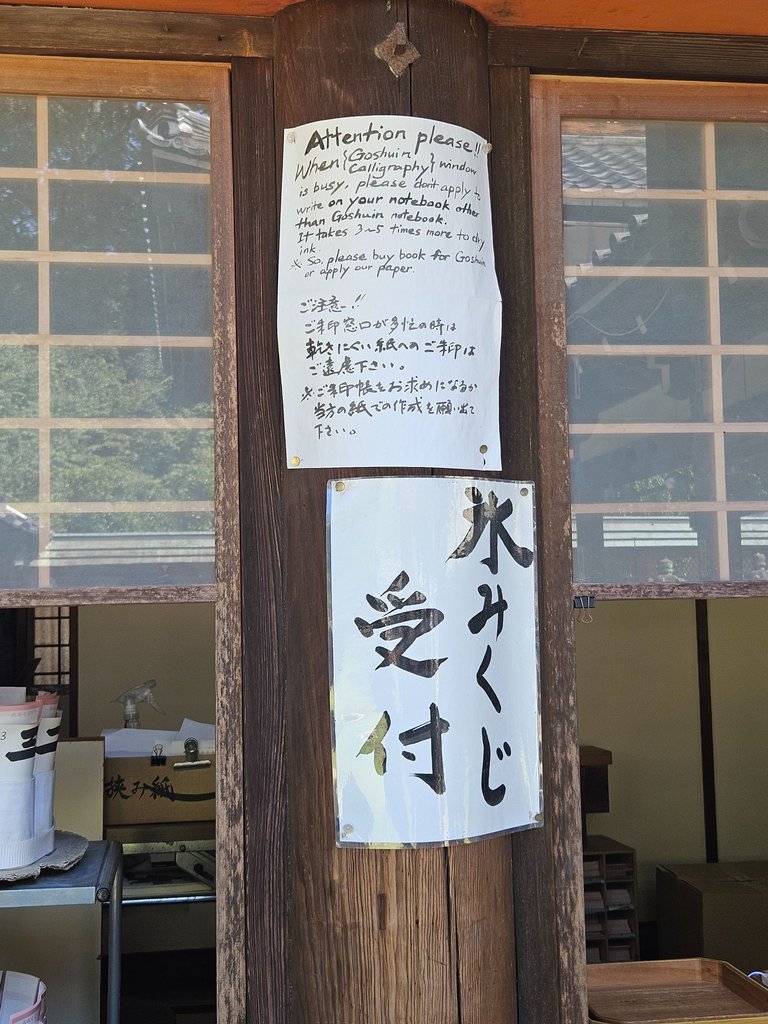 Attention please!!
When {Goshuin Calligraphy} window
is busy, please don't apply to
write on your notebook other
than Goshuin notebook.
It takes 3~5 times more to dry
ink.
※ So, please buy book for Goshuin
or apply our paper.
ご注意ー!!
ご朱印窓口が多忙の時は
乾きにくい紙へのご朱印は
ご遠慮下さい。
※ご朱印帳をお求めになるか
当方の紙での作成を願い出て
下さい。
氷みくじ
受付
挟み紙
三
3